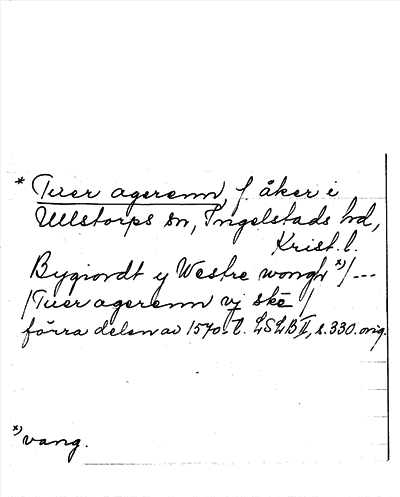 * Tuer agerenn, f. åker i
Ullstorps sn, Ingelstads hd,
Krist. l.
Bygiordt y Westre wongh x)/---
/Tuer agerenn vj skē/
förra delen av 1570-t. LSLB II, s. 330. orig.
x) vang.